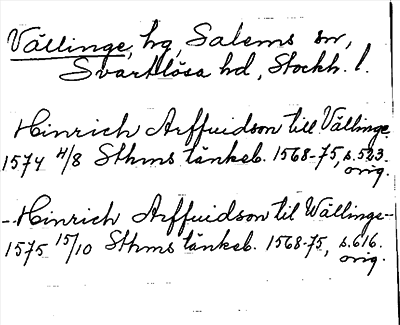 Vällinge, hg, Salems sn,
Svartlösa hd, Stockh. l.
Hinrich Arffuidson till Vällinge
1574 4/8 Sthms tänkeb. 1568-75, s. 523.
orig.
-Hinrich Arffuidson til Wällinge-
1575 15/10 Sthms tänkeb. 1568-75, s. 616.
orig.